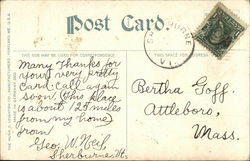 Post Card
THIS SPACE MAY BE USED FOR CORRESPONDENCE
SHERBURNE
VT.
Many Thanks for
your very pretty
card. call again
soon. This place
is about 125 miles
from my home
from
Geo. W. Neil,
Sherburne Vt.
Bertha Goff.
Attleboro,
Mass.